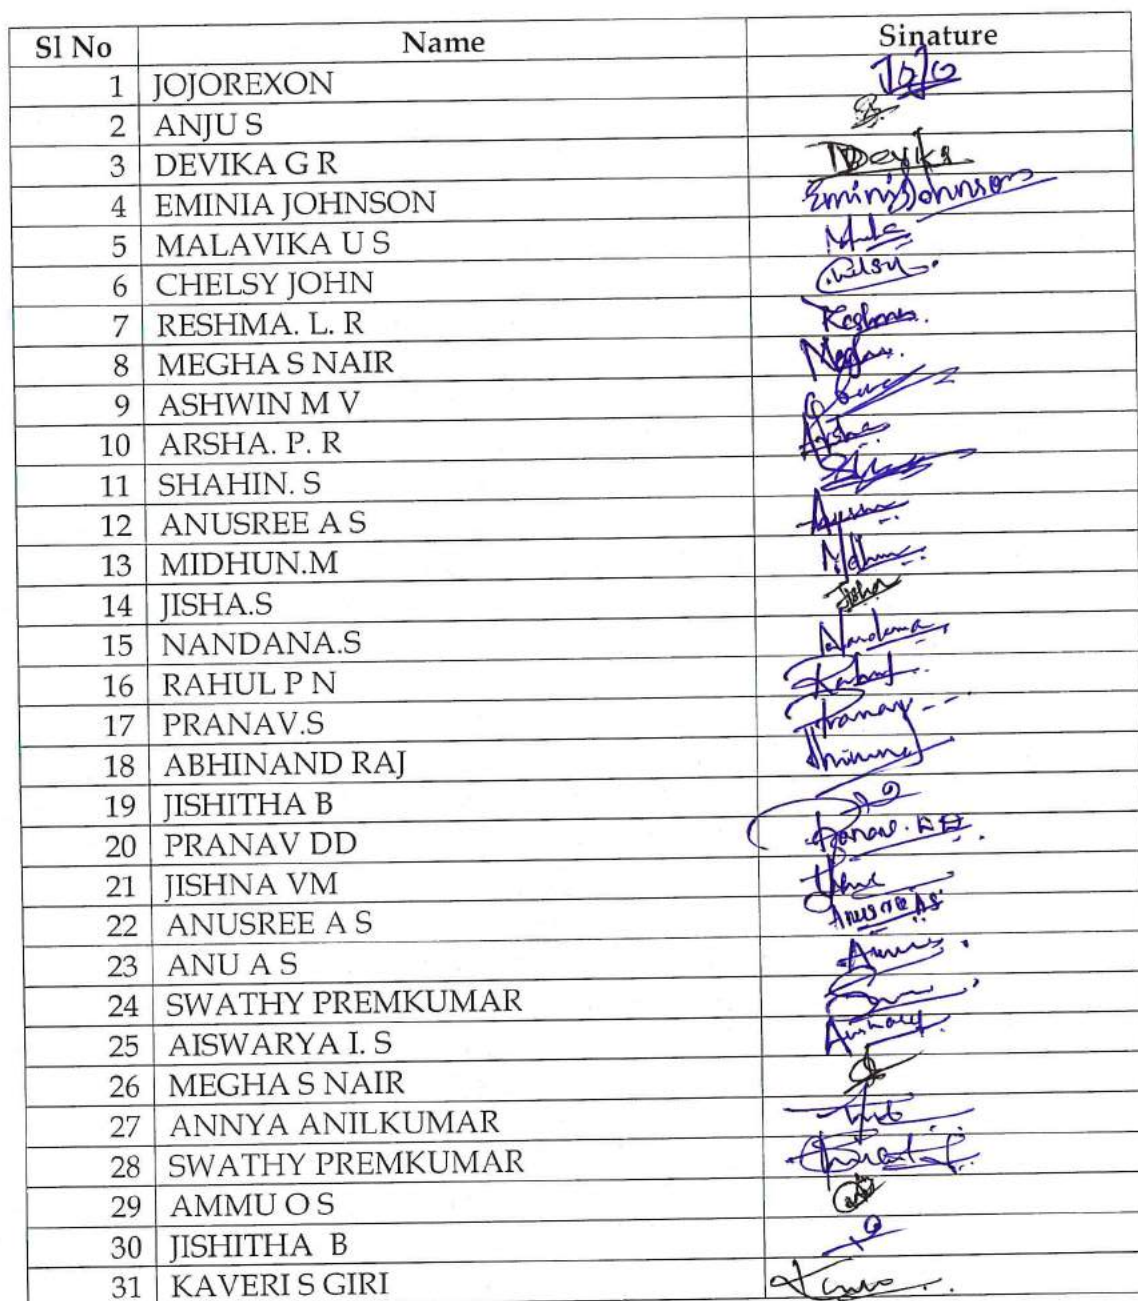 Sl No Name Sinature
1 JOJOREXON JoJo
2 ANJU S
3 DEVIKA G R Devika
4 EMINIA JOHNSON EminiaJohnson
5 MALAVIKA U S
6 CHELSY JOHN Chelsy
7 RESHMA. L. R Reshma
8 MEGHA S NAIR Megha
9 ASHWIN M V
10 ARSHA. P. R Arsha
11 SHAHIN. S
12 ANUSREE A S
13 MIDHUN.M Midhun
14 JISHA.S Jisha
15 NANDANA.S Nandana
16 RAHUL P N Rahul
17 PRANAV.S Pranav
18 ABHINAND RAJ
19 JISHITHA B
20 PRANAV DD Pranav. DD
21 JISHNA VM
22 ANUSREE A S ANUSREE AS
23 ANU A S
24 SWATHY PREMKUMAR
25 AISWARYA I. S
26 MEGHA S NAIR
27 ANNYA ANILKUMAR
28 SWATHY PREMKUMAR
29 AMMU O S
30 JISHITHA B
31 KAVERI S GIRI